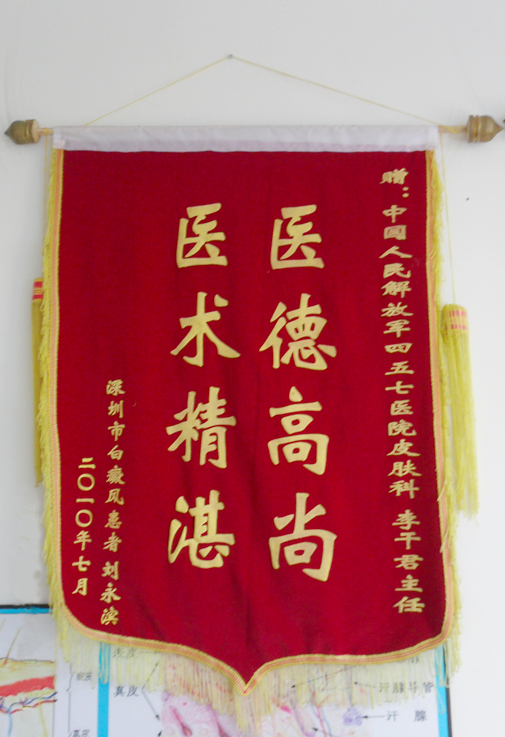 赠：中国人民解放军四五七医院皮肤科 李干君主任
医德高尚
医术精湛
深圳市白癜风患者 刘永滨
二〇一〇年七月
真皮
真皮
汗腺导管
汗腺